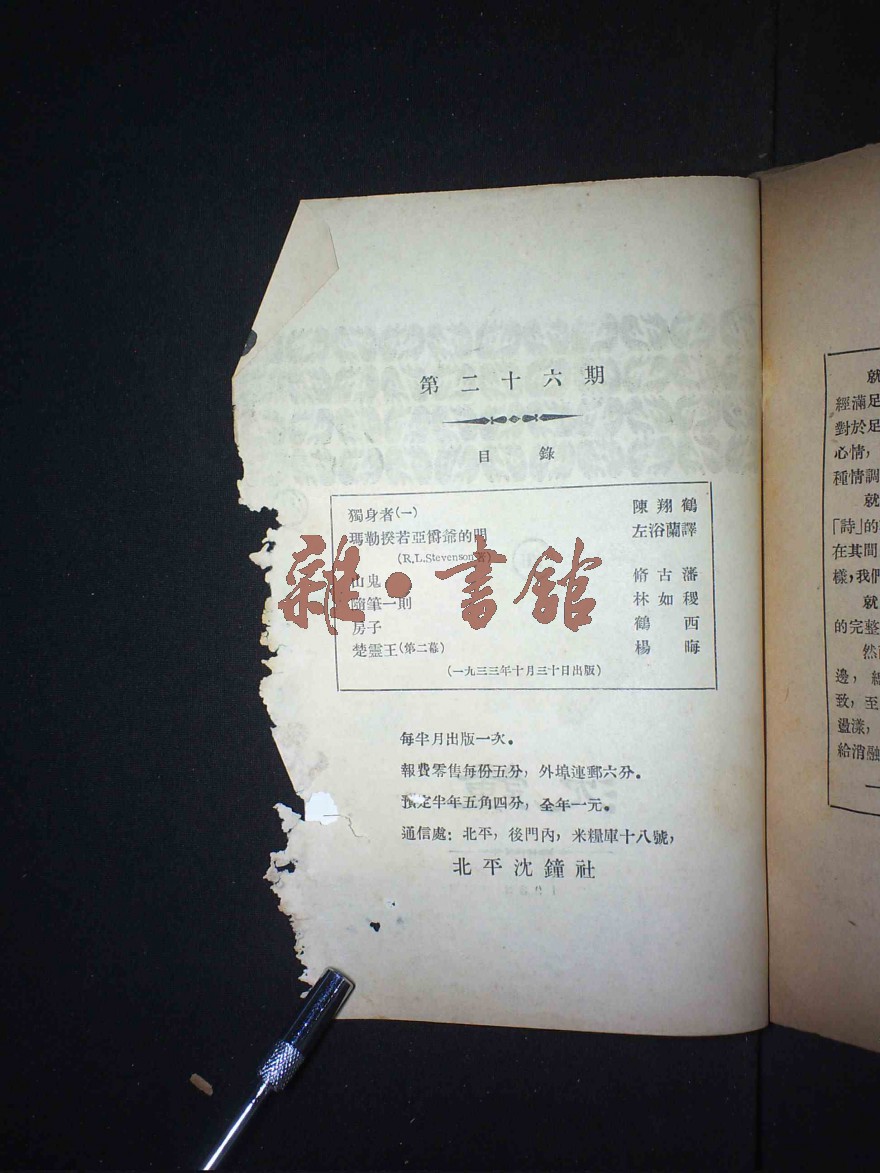 第二十六期
目錄
獨身者(一) 陳翔鶴
瑪勒揆若亞爵爺的門 左浴蘭譯
(R.L.Stevenson著)
山鬼 脩古藩
隨筆一則 林如稷
房子 鶴西
楚靈王(第二幕) 楊晦
(一九三三年十月三十日出版)
每半月出版一次。
報費零售每份五分，外埠連郵六分。
預定半年五角四分，全年一元。
通信處：北平，後門內，米糧庫十八號，
北平沈鐘社
雜·書館
就
經滿足
對於足
心情，
種情調
就
「詩」的
在其間
樣，我們
就
的完整
然而
邊，
致，至
盪漾，
給消融